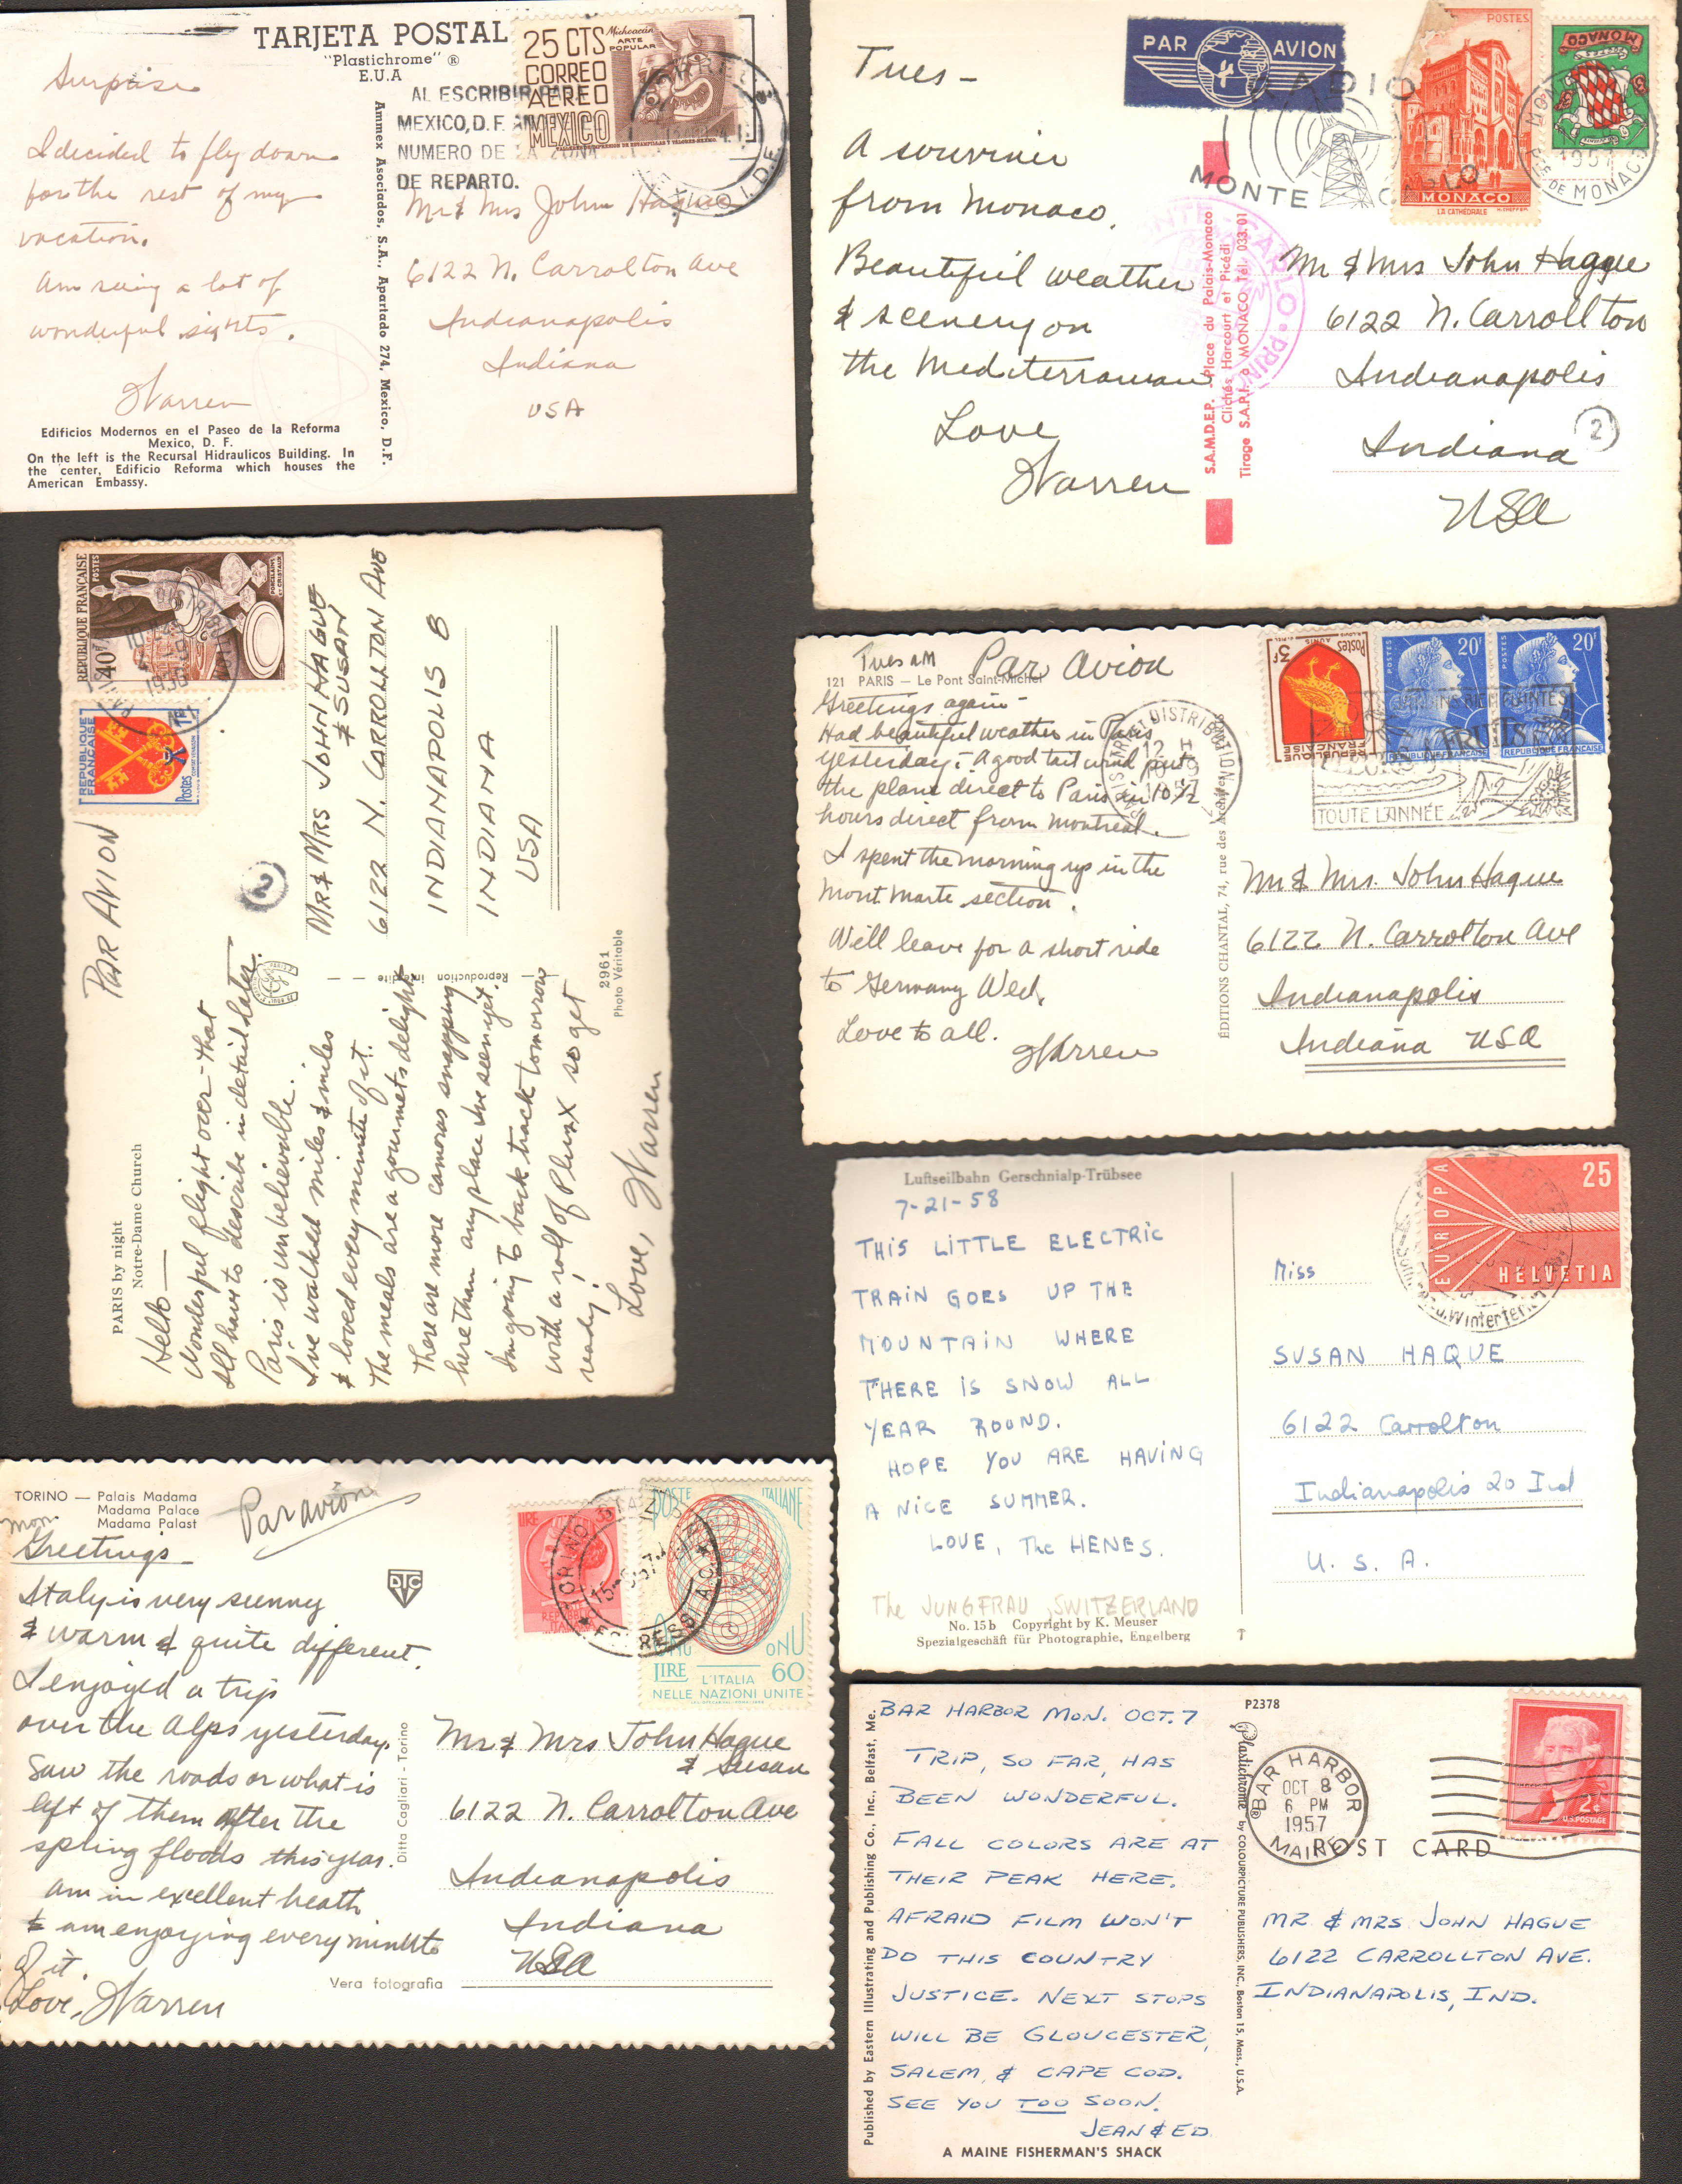 TARJETA POSTAL
"Plastichrome" ®
E.U.A
25 CTS
CORREO
AEREO
MEXICO
Michoacán
ARTE
POPULAR
AL ESCRIBIR PARA
MEXICO, D.F. ANOTE
NUMERO DE LA ZONA
DE REPARTO.
Surprise
I decided to fly down
for the rest of my
vacation.
Am seeing a lot of
wonderful sights.
Warren
Edificios Modernos en el Paseo de la Reforma
Mexico, D. F.
On the left is the Recursal Hidraulicos Building. In
the center, Edificio Reforma which houses the
American Embassy.
Ammex Asociados, S.A., Apartado 274, Mexico, D.F.
Mr & Mrs John Hague
6122 N. Carrolton Ave
Indianapolis
Indiana
USA
PAR AVION
RADIO
MONTE CARLO
POSTES
MONACO
LA CATHÉDRALE
MONACO
1957
Pté DE MONACO
Tues –
A souvinir
from Monaco.
Beautiful weather
& scenery on
the Mediterranean
Love
Warren
MONTE-CARLO
S.A.M.D.E.P. - Place du Palais-Monaco
Clichés Harcourt et Picédi
Tirage S.A.P.I. à MONACO Tél. 033.01
Mr & Mrs John Hague
6122 N. Carrollton
Indianapolis
Indiana
2
USA
REPUBLIQUE FRANÇAISE
POSTES
40F
PORCELAINE
ET CRISTAUX
DISTRIBUTION
REPUBLIQUE
FRANCAISE
1F
Postes
PAR AVION
2
PARIS by night
Notre-Dame Church
Hello —
Wonderful flight over - that
I'll have to describe in detail later.
Paris is unbelievable.
I've walked miles & miles
& loved every minute of it.
The meals are a gourmets delight
There are more cameras snapping
here than any place I've seen yet.
I'm going to back track tomorrow
with a roll of Plus X so get
ready!
Love, Warren
Reproduction interdite
2961
Photo Véritable
MR & MRS JOHN HAGUE
& SUSAN
6122 N. CARROLLTON AVE
INDIANAPOLIS 8
INDIANA
USA
Tues AM
Par Avion
121 PARIS — Le Pont Saint-Michel
Greetings again -
Had beautiful weather in Paris
yesterday. A good tail wind put
the plane direct to Paris in 10 1/2
hours direct from Montreal.
I spent the morning up in the
Mont. Marte section.
We'll leave for a short ride
to Germany Wed.
Love to all.
Warren
DISTRIBUTION
12 H
ÉDITIONS CHANTAL, 74, rue des Archives
3F
Postes
AUNIS
REPUBLIQUE
FRANCAISE
POSTES
20F
REPUBLIQUE FRANÇAISE
POSTES
20F
REPUBLIQUE FRANÇAISE
FRUITS
TOUTE L'ANNÉE
Mr & Mrs. John Hague
6122 N. Carrolton Ave
Indianapolis
Indiana USA
Luftseilbahn Gerschnialp-Trübsee
7-21-58
THIS LITTLE ELECTRIC
TRAIN GOES UP THE
MOUNTAIN WHERE
THERE IS SNOW ALL
YEAR ROUND.
HOPE YOU ARE HAVING
A NICE SUMMER.
LOVE, The HENES.
The JUNGFRAU, SWITZERLAND
No. 15b Copyright by K. Meuser
Spezialgeschäft für Photographie, Engelberg
EUROPA
25
HELVETIA
Miss
SUSAN HAQUE
6122 Carrolton
Indianapolis 20 Ind
U. S. A.
TORINO — Palais Madama
Madama Palace
Madama Palast
Par avion
Mon
Greetings –
Italy is very sunny
& warm & quite different.
I enjoyed a trip
over the Alps yesterday.
Saw the roads or what is
left of them after the
spring floods this year.
Am in excellent heath
& am enjoying every minute
of it.
Love, Warren
DTC
Ditta Cagliari - Torino
Vera fotografia
LIRE
REPUBBLICA
ITALIANA
TORINO
POSTE ITALIANE
ONU
ONU
LIRE 60
L'ITALIA
NELLE NAZIONI UNITE
Mr & Mrs John Hague
& Susan
6122 N. Carrolton Ave
Indianapolis
Indiana
USA
BAR HARBOR MON. OCT. 7
TRIP, SO FAR, HAS
BEEN WONDERFUL.
FALL COLORS ARE AT
THEIR PEAK HERE.
AFRAID FILM WON'T
DO THIS COUNTRY
JUSTICE. NEXT STOPS
WILL BE GLOUCESTER,
SALEM, & CAPE COD.
SEE YOU TOO SOON.
JEAN & ED
A MAINE FISHERMAN'S SHACK
Published by Eastern Illustrating and Publishing Co., Inc., Belfast, Me.
P2378
Plastichrome ® by COLOURPICTURE PUBLISHERS, INC., Boston 15, Mass., U.S.A.
BAR HARBOR
OCT 8
6 PM
1957
MAINE
POST CARD
2¢
U.S. POSTAGE
MR & MRS JOHN HAGUE
6122 CARROLLTON AVE.
INDIANAPOLIS, IND.